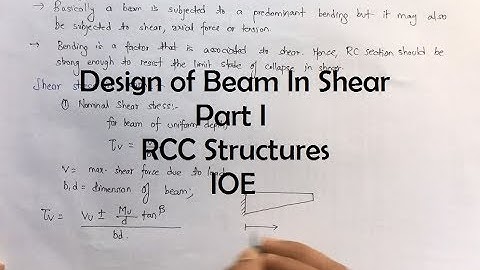 → Basically a beam is subjected to a predominant bending but it may also
be subjected to shear, axial force or tension
→ Bending is a factor that is associated to shear. Hence, RC section should be
strong enough to resist the limit state of collapse in shear.
Design of Beam In Shear
Part I
RCC Structures
IOE
Shear
① Nominal shear stress:-
for beam of uniform
τv =
V = max. shear force due to
b,d = dimension of beam;
τv = Vu ± Mu/d tanβ
bd.